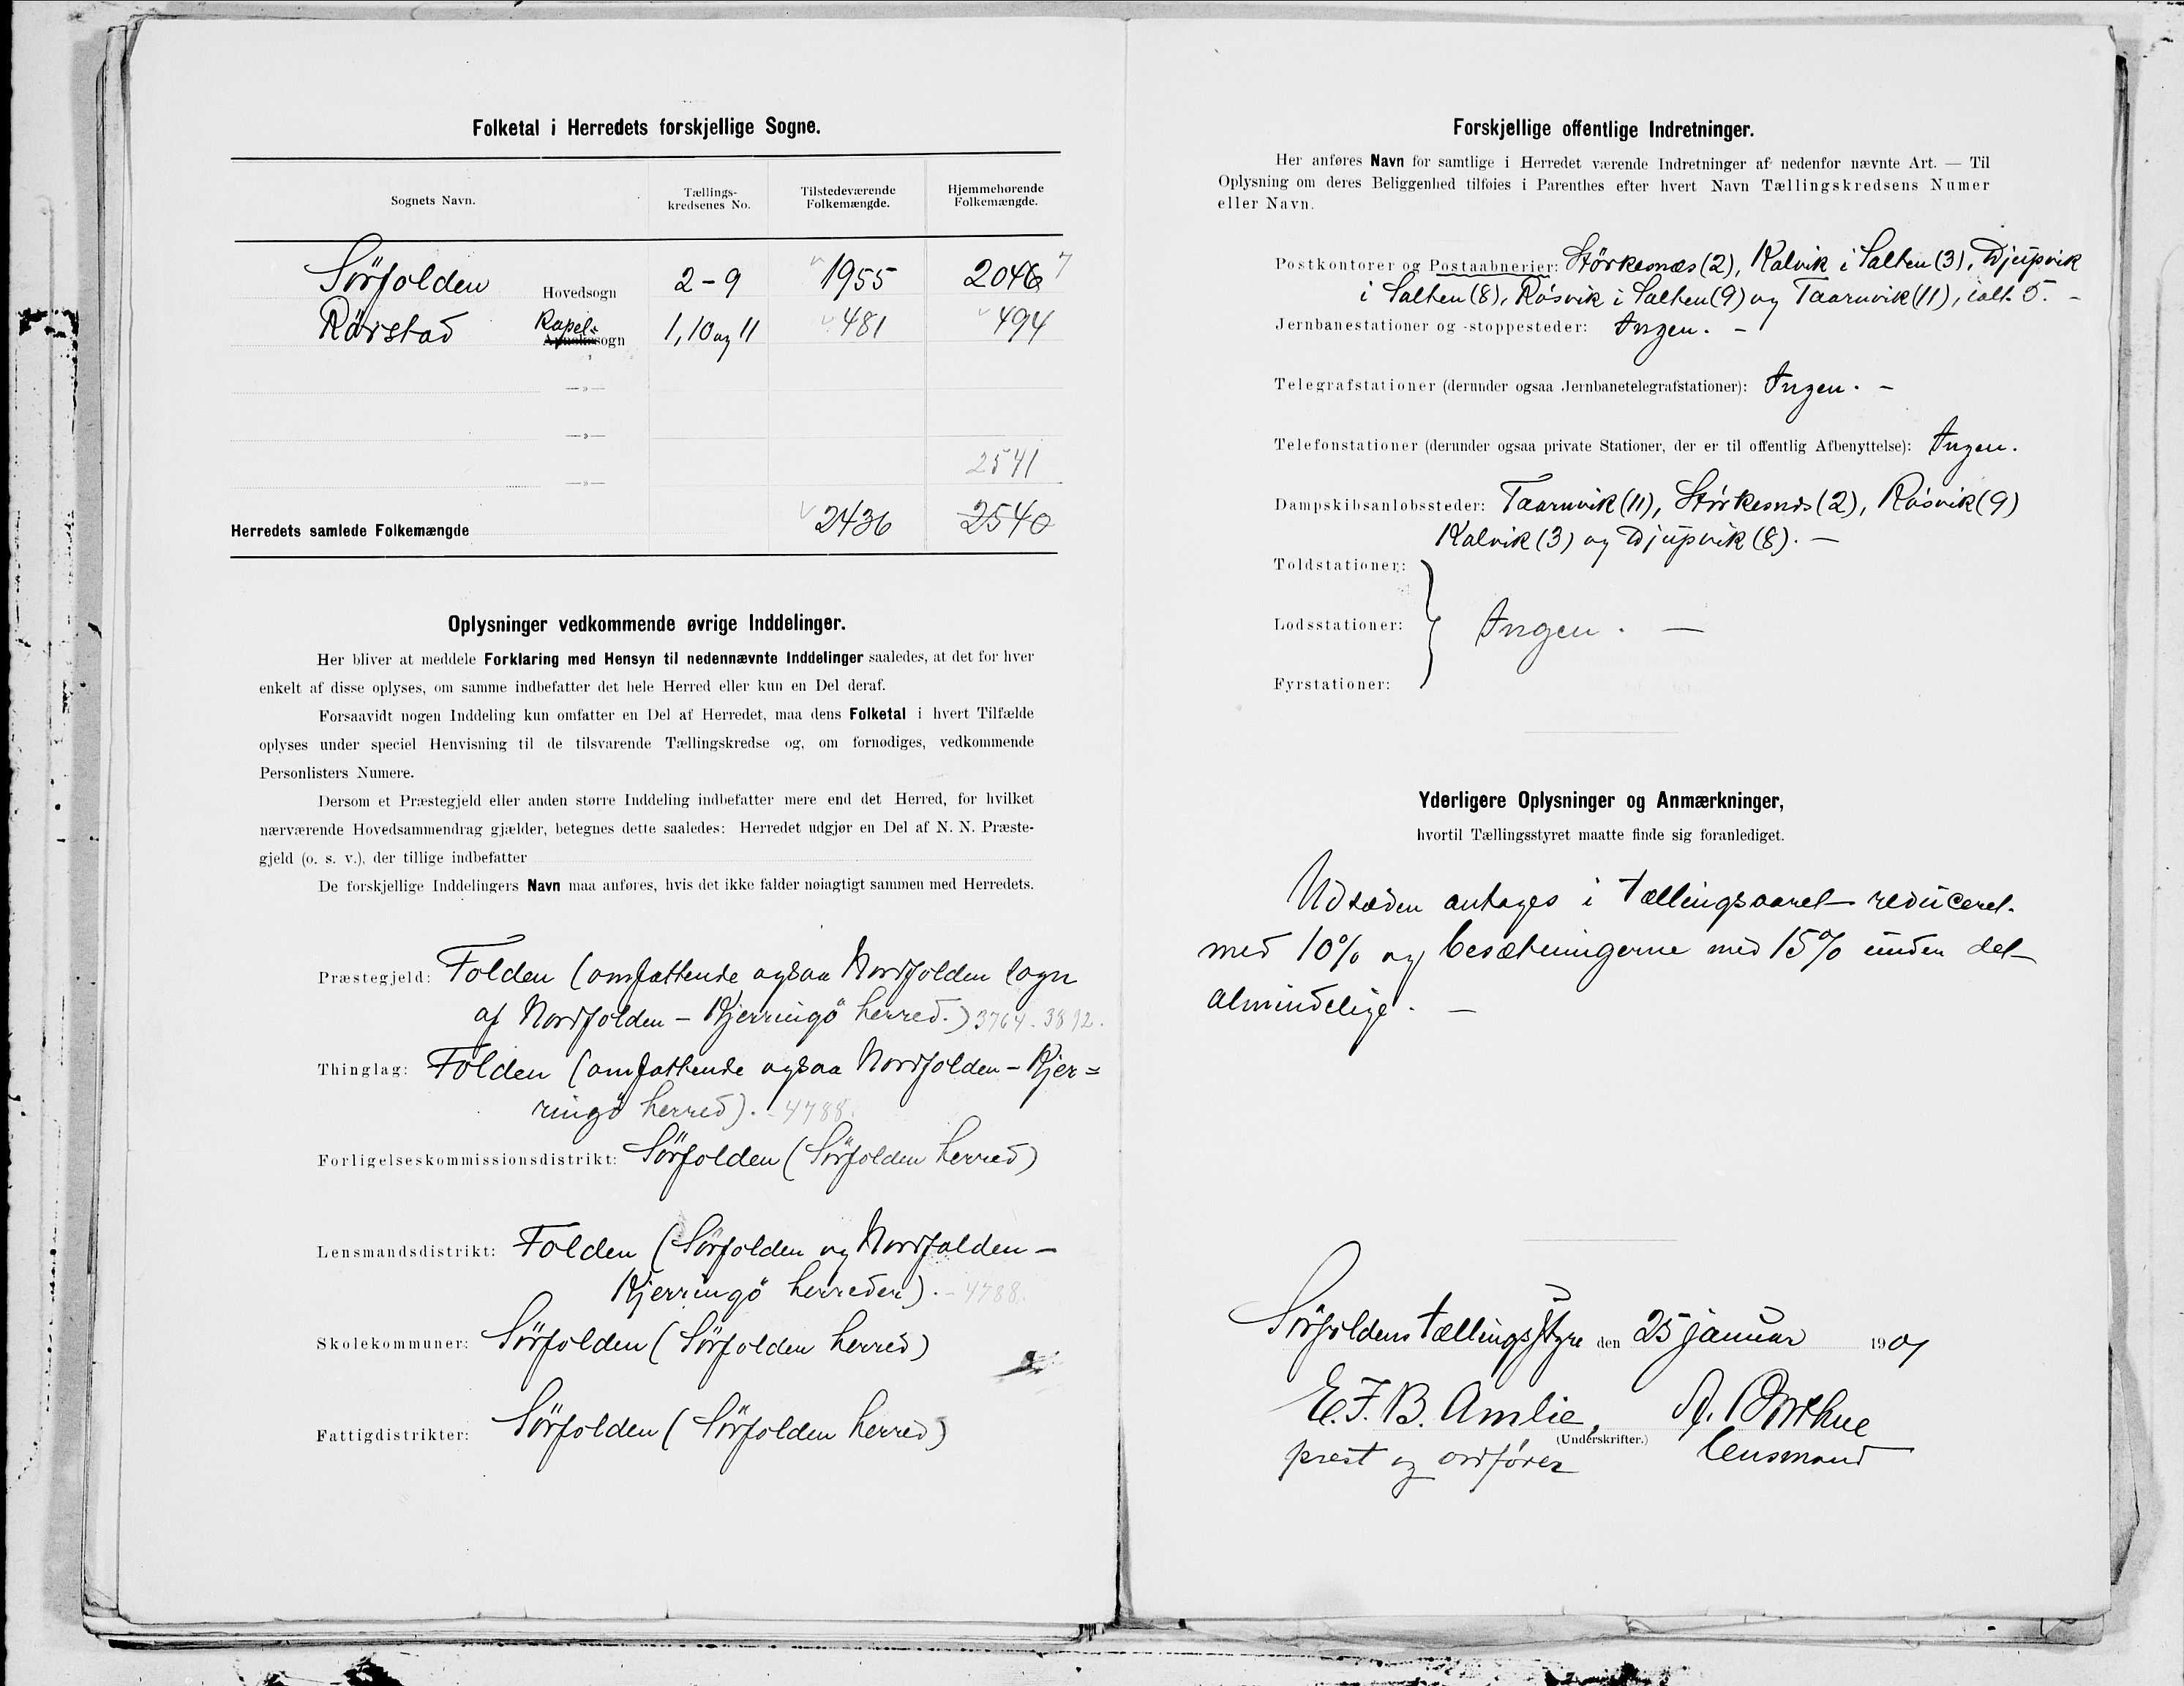 Folketal i Herredets forskjellige Sogne.
Sognets Navn. Tællings-kredsenes No. Tilstedeværende Folkemængde. Hjemmehørende Folkemængde.
Sörfolden Hovedsogn 2-9 1955 2046 7
Rörstad Kapel- sogn 1, 10 og 11 481 494
—»—
—»—
2541
—»—
Herredets samlede Folkemængde 2436 2540
Oplysninger vedkommende øvrige Inddelinger.
Her bliver at meddele Forklaring med Hensyn til nedennævnte Inddelinger saaledes, at det for hver
enkelt af disse oplyses, om samme indbefatter det hele Herred eller kun en Del deraf.
Forsaavidt nogen Inddeling kun omfatter en Del af Herredet, maa dens Folketal i hvert Tilfælde
oplyses under speciel Henvisning til de tilsvarende Tællingskredse og, om fornødiges, vedkommende
Personlisters Numere.
Dersom et Præstegjeld eller anden større Inddeling indbefatter mere end det Herred, for hvilket
nærværende Hovedsammendrag gjælder, betegnes dette saaledes: Herredet udgjør en Del af N. N. Præste-
gjeld (o. s. v.), der tillige indbefatter
De forskjellige Inddelingers Navn maa anføres, hvis det ikke falder nøiagtigt sammen med Herredets.
Præstegjeld: Folden (omfattende ogsaa Nordfolden sogn
af Nordfolden - Kjerringö herred.) 3764. 3892.
Thinglag: Folden (omfattende ogsaa Nordfolden - Kjer=
ringö herred). - 4788.
Forligelseskommissionsdistrikt: Sörfolden (Sörfolden herred)
Lensmandsdistrikt: Folden (Sörfolden og Nordfolden -
Kjerringö herreder). - 4788.
Skolekommuner: Sörfolden (Sörfolden herred)
Fattigdistrikter: Sörfolden (Sörfolden herred)
Forskjellige offentlige Indretninger.
Her anføres Navn for samtlige i Herredet værende Indretninger af nedenfor nævnte Art. — Til
Oplysning om deres Beliggenhed tilføies i Parenthes efter hvert Navn Tællingskredsens Numer
eller Navn.
Postkontorer og Postaabnerier: Störkesnæs (2), Kalvik i Salten (3), Djupvik
i Salten (8), Rösvik i Salten (9) og Taarnvik (11), ialt 5. -
Jernbanestationer og -stoppesteder: Ingen. -
Telegrafstationer (derunder ogsaa Jernbanetelegrafstationer): Ingen. -
Telefonstationer (derunder ogsaa private Stationer, der er til offentlig Afbenyttelse): Ingen.
Dampskibsanløbssteder: Taarnvik (11), Störkesnæs (2), Rösvik (9)
Kalvik (3) og Djupvik (8). -
Toldstationer:
Lodsstationer: Ingen. -
Fyrstationer:
Yderligere Oplysninger og Anmærkninger,
hvortil Tællingsstyret maatte finde sig foranlediget.
Udsæden antages i tællingsaaret reduceret
med 10% og besætningerne med 15% under det
almindelige. -
Sörfoldens tællingsstyre den 25 januar 1901
E. F. B. Amlie,
(Underskrifter.)
prest og ordförer lensmand